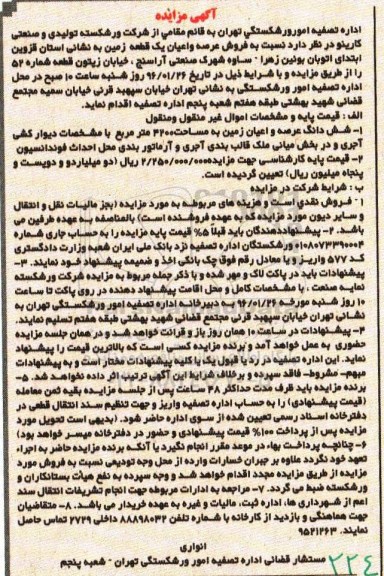 آگهی مزایده
اداره تصفیه امورورشکستگی تهران به قائم مقامی از شرکت ورشکسته تولیدی و صنعتی
کارینو در نظر دارد نسبت به فروش عرصه واعیان یک قطعه زمین به نشانی استان قزوین
ابتدای اتوبان بوئین زهرا - ساوه شهرک صنعتی آراسنج ، خیابان زیتون قطعه شماره ۵۲
را از طریق مزایده و با شرایط ذیل در تاریخ ۹۶/۰۱/۲۶ روز شنبه ساعت ۱۰ صبح در محل
اداره تصفیه امور ورشکستگی به نشانی تهران خیابان سپهبد قرنی خیابان سمیه مجتمع
قضائی شهید بهشتی طبقه هفتم شعبه پنجم اداره تصفیه اقدام نماید.
الف : قیمت پایه و مشخصات اموال غیر منقول ومنقول
۱- شش دانگ عرصه و اعیان زمین به مساحت ۴۲۰۰ متر مربع با مشخصات دیوار کشی
آجری و در بخش میانی ملک قالب بندی آجری و آرماتور بندی محل احداث فونداسیون
۲- قیمت پایه کارشناسی جهت مزایده ۲/۲۵۰/۰۰۰/۰۰۰ ریال (دو میلیاردو و دویست و
پنجاه میلیون ریال) تعیین گردیده است.
ب : شرایط شرکت در مزایده
۱ - فروش نقدی است و هزینه های مربوطه به مورد مزایده (بجز مالیات نقل و انتقال
و سایر دیون مورد مزایده که به عهده فروشنده است) بالمناصفه به عهده طرفین می
باشد. ۲- پیشنهاددهندگان باید قبلاً ۵% قیمت پایه مزایده را به حساب جاری شماره
۰۱۰۸۰۷۳۳۹۰۰۴ ورشکستگان اداره تصفیه نزد بانک ملی ایران شعبه وزارت دادگستری
کد ۵۷۷ واریز و یا معادل رقم فوق چک بانکی اخذ و ضمیمه پیشنهاد خود نمایند. ۳-
پیشنهادات باید در پاکت لاک و مهر شده و با ذکر جمله مربوط به مزایده شرکت ورشکسته
نمایه صنعت ، با مشخصات کامل و محل اقامت پیشنهاد دهنده در روی پاکت تا ساعت
۱۰ روز شنبه مورخه ۹۶/۰۱/۲۶ به دبیرخانه اداره تصفیه امور ورشکستگی تهران به
نشانی تهران خیابان سپهبد قرنی مجتمع قضائی شهید بهشتی طبقه هفتم تسلیم نمایند.
۴- پیشنهادات در ساعت ۱۰ همان روز باز و قرائت خواهد شد و در همان جلسه مزایده
حضوری به عمل خواهد آمد و برنده مزایده کسی است که بالاترین قیمت را پیشنهاد
نماید. این اداره تصفیه در رد یا قبول یک یا کلیه پیشنهادات مختار است و به پیشنهادات
مبهم- مشروط- فاقد سپرده و برخلاف شرایط این آگهی ترتیب اثر داده نخواهد شد. ۵-
برنده مزایده باید ظرف مدت حداکثر ۴۸ ساعت پس از جلسه مزایده بقیه ثمن معامله
(قیمت پیشنهادی) را به حساب اداره تصفیه واریز و جهت تنظیم سند انتقال قطعی در
دفترخانه اسناد رسمی تعیین شده از سوی اداره حاضر شود. (بدیهی است تحویل مورد
مزایده پس از پرداخت ۱۰۰% قیمت پیشنهادی و حضور در دفترخانه میسر خواهد بود)
۶- چنانچه پرداخت بهاء در موعد مقرر انجام نگیرد یا آنکه برنده مزایده حاضر به اجراء
تعهد خود نگردد علاوه بر جبران خسارات وارده از محل وجه تودیعی نسبت به فروش مورد
مزایده از طریق مزایده مجدد اقدام خواهد شد و وجه سپرده به نفع هیأت بستانکاران و
ورشکسته ضبط می گردد. ۷- مراجعه به ادارات مربوطه جهت انجام تشریفات انتقال سند
اعم از شهرداری ها، اداره ثبت، مالیات و غیره به عهده خریدار می باشد. ۸- متقاضیان
جهت هماهنگی و بازدید از کارخانه با شماره تلفن ۸۸۸۹۸۰۳۲ داخلی ۲۷۲۹ تماس حاصل
نمایند. ۹۵۲۱۲۶۳
انواری
مستشار قضائی اداره تصفیه امور ورشکستگی تهران - شعبه پنجم
۲۲۴